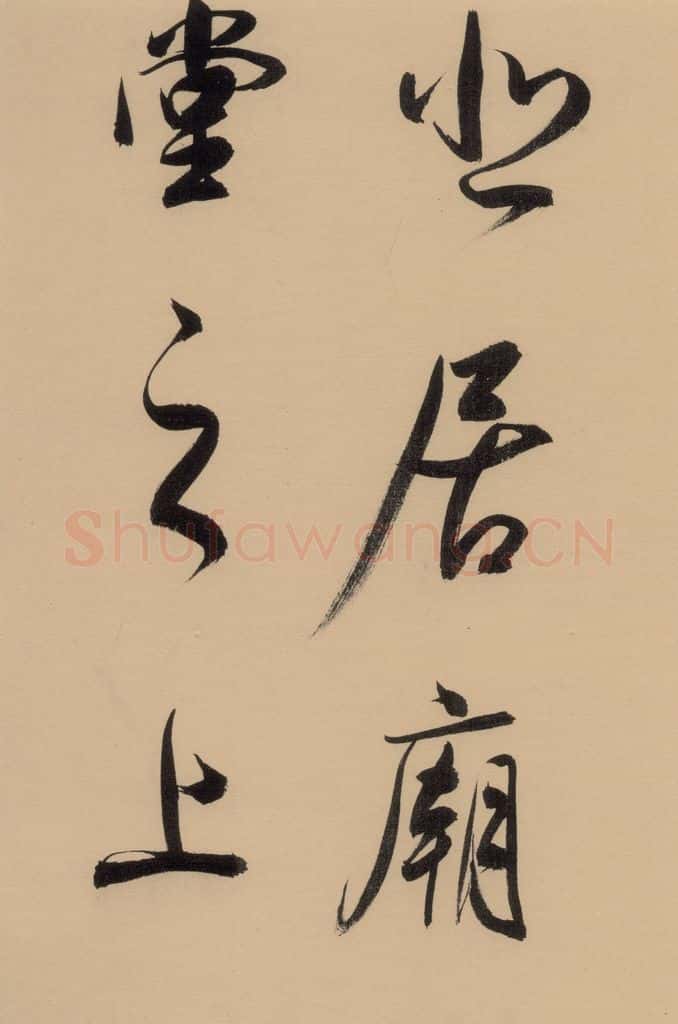 居廟
堂之上
Shufawang.CN